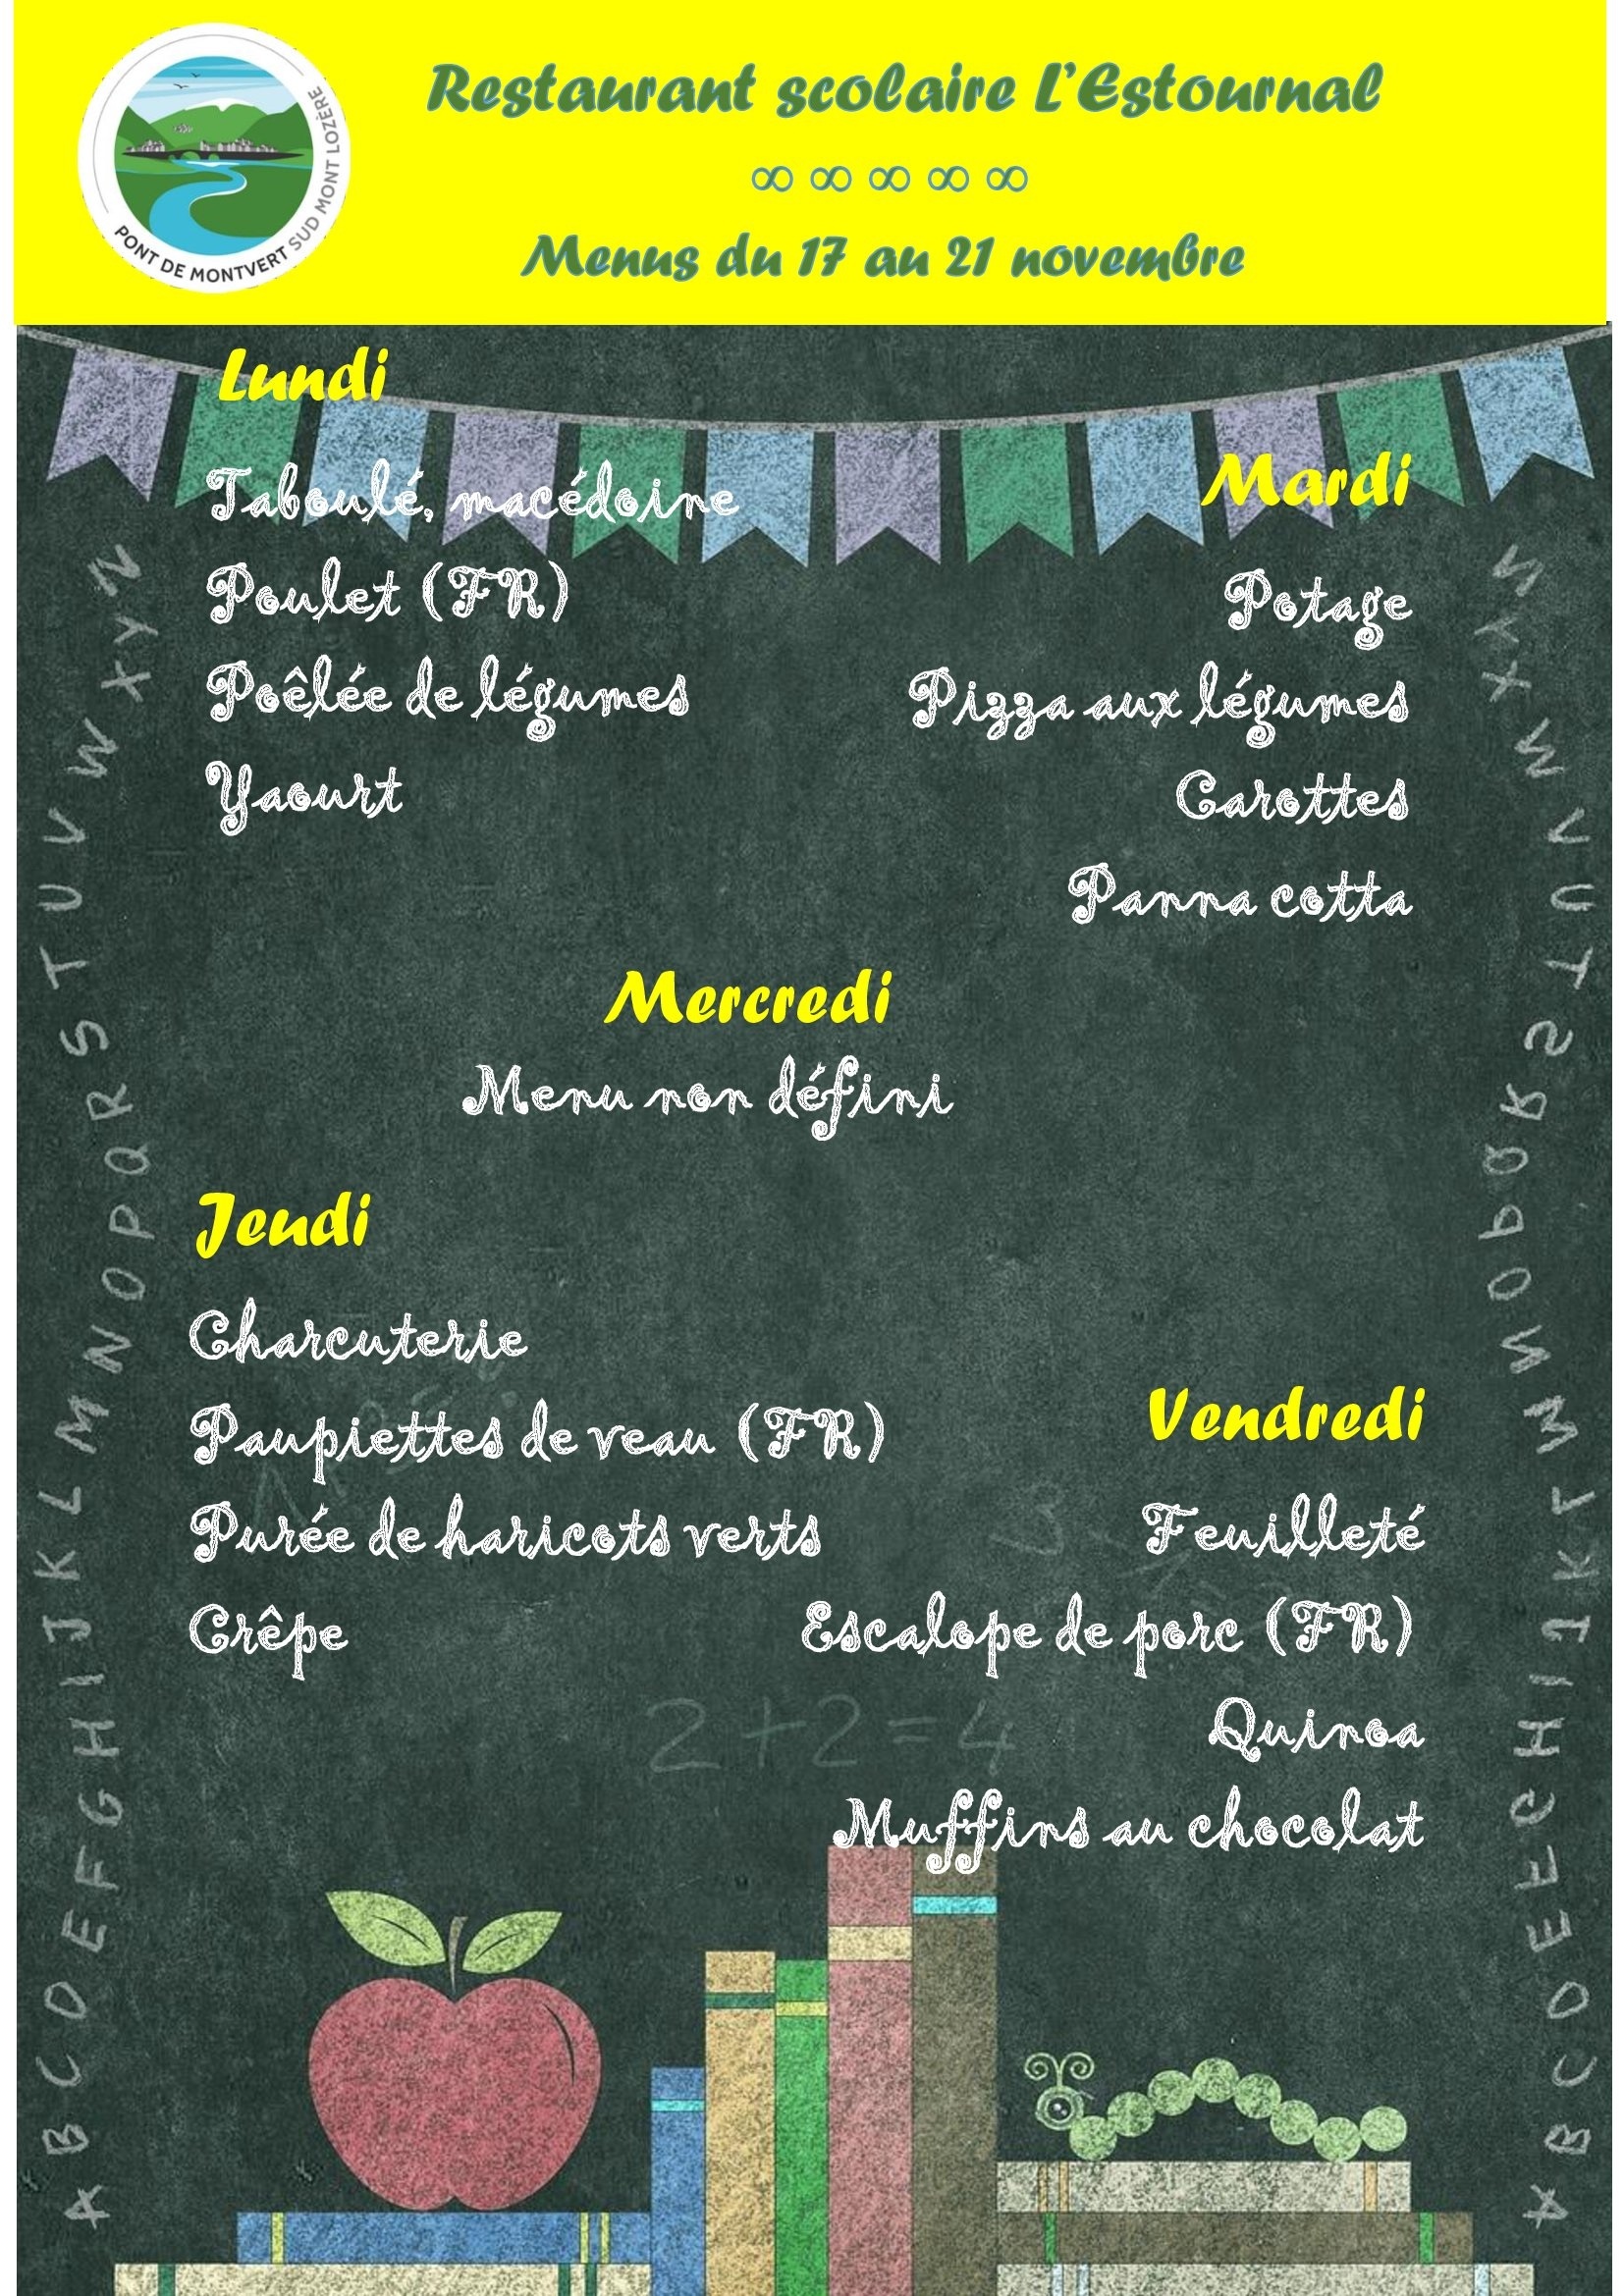 PONT DE MONTVERT SUD MONT LOZÈRE
Restaurant scolaire L'Estournal
∞ ∞ ∞ ∞ ∞
Menus du 17 au 21 novembre
Lundi
Taboulé, macédoine
Poulet (FR)
Poêlée de légumes
Yaourt
Mardi
Potage
Pizza aux légumes
Carottes
Panna cotta
Mercredi
Menu non défini
Jeudi
Charcuterie
Paupiettes de veau (FR)
Purée de haricots verts
Crêpe
Vendredi
Feuilleté
Escalope de porc (FR)
Quinoa
Muffins au chocolat
2+2=4